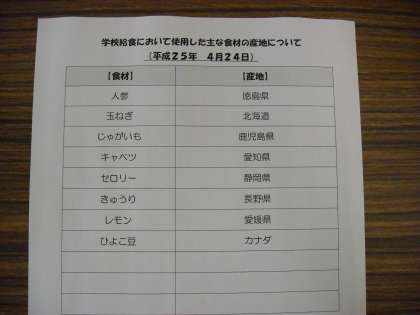 学校給食において使用した主な食材の産地について
（平成２５年　４月２４日）
【食材】 【産地】
人参 徳島県
玉ねぎ 北海道
じゃがいも 鹿児島県
キャベツ 愛知県
セロリー 静岡県
きゅうり 長野県
レモン 愛媛県
ひよこ豆 カナダ